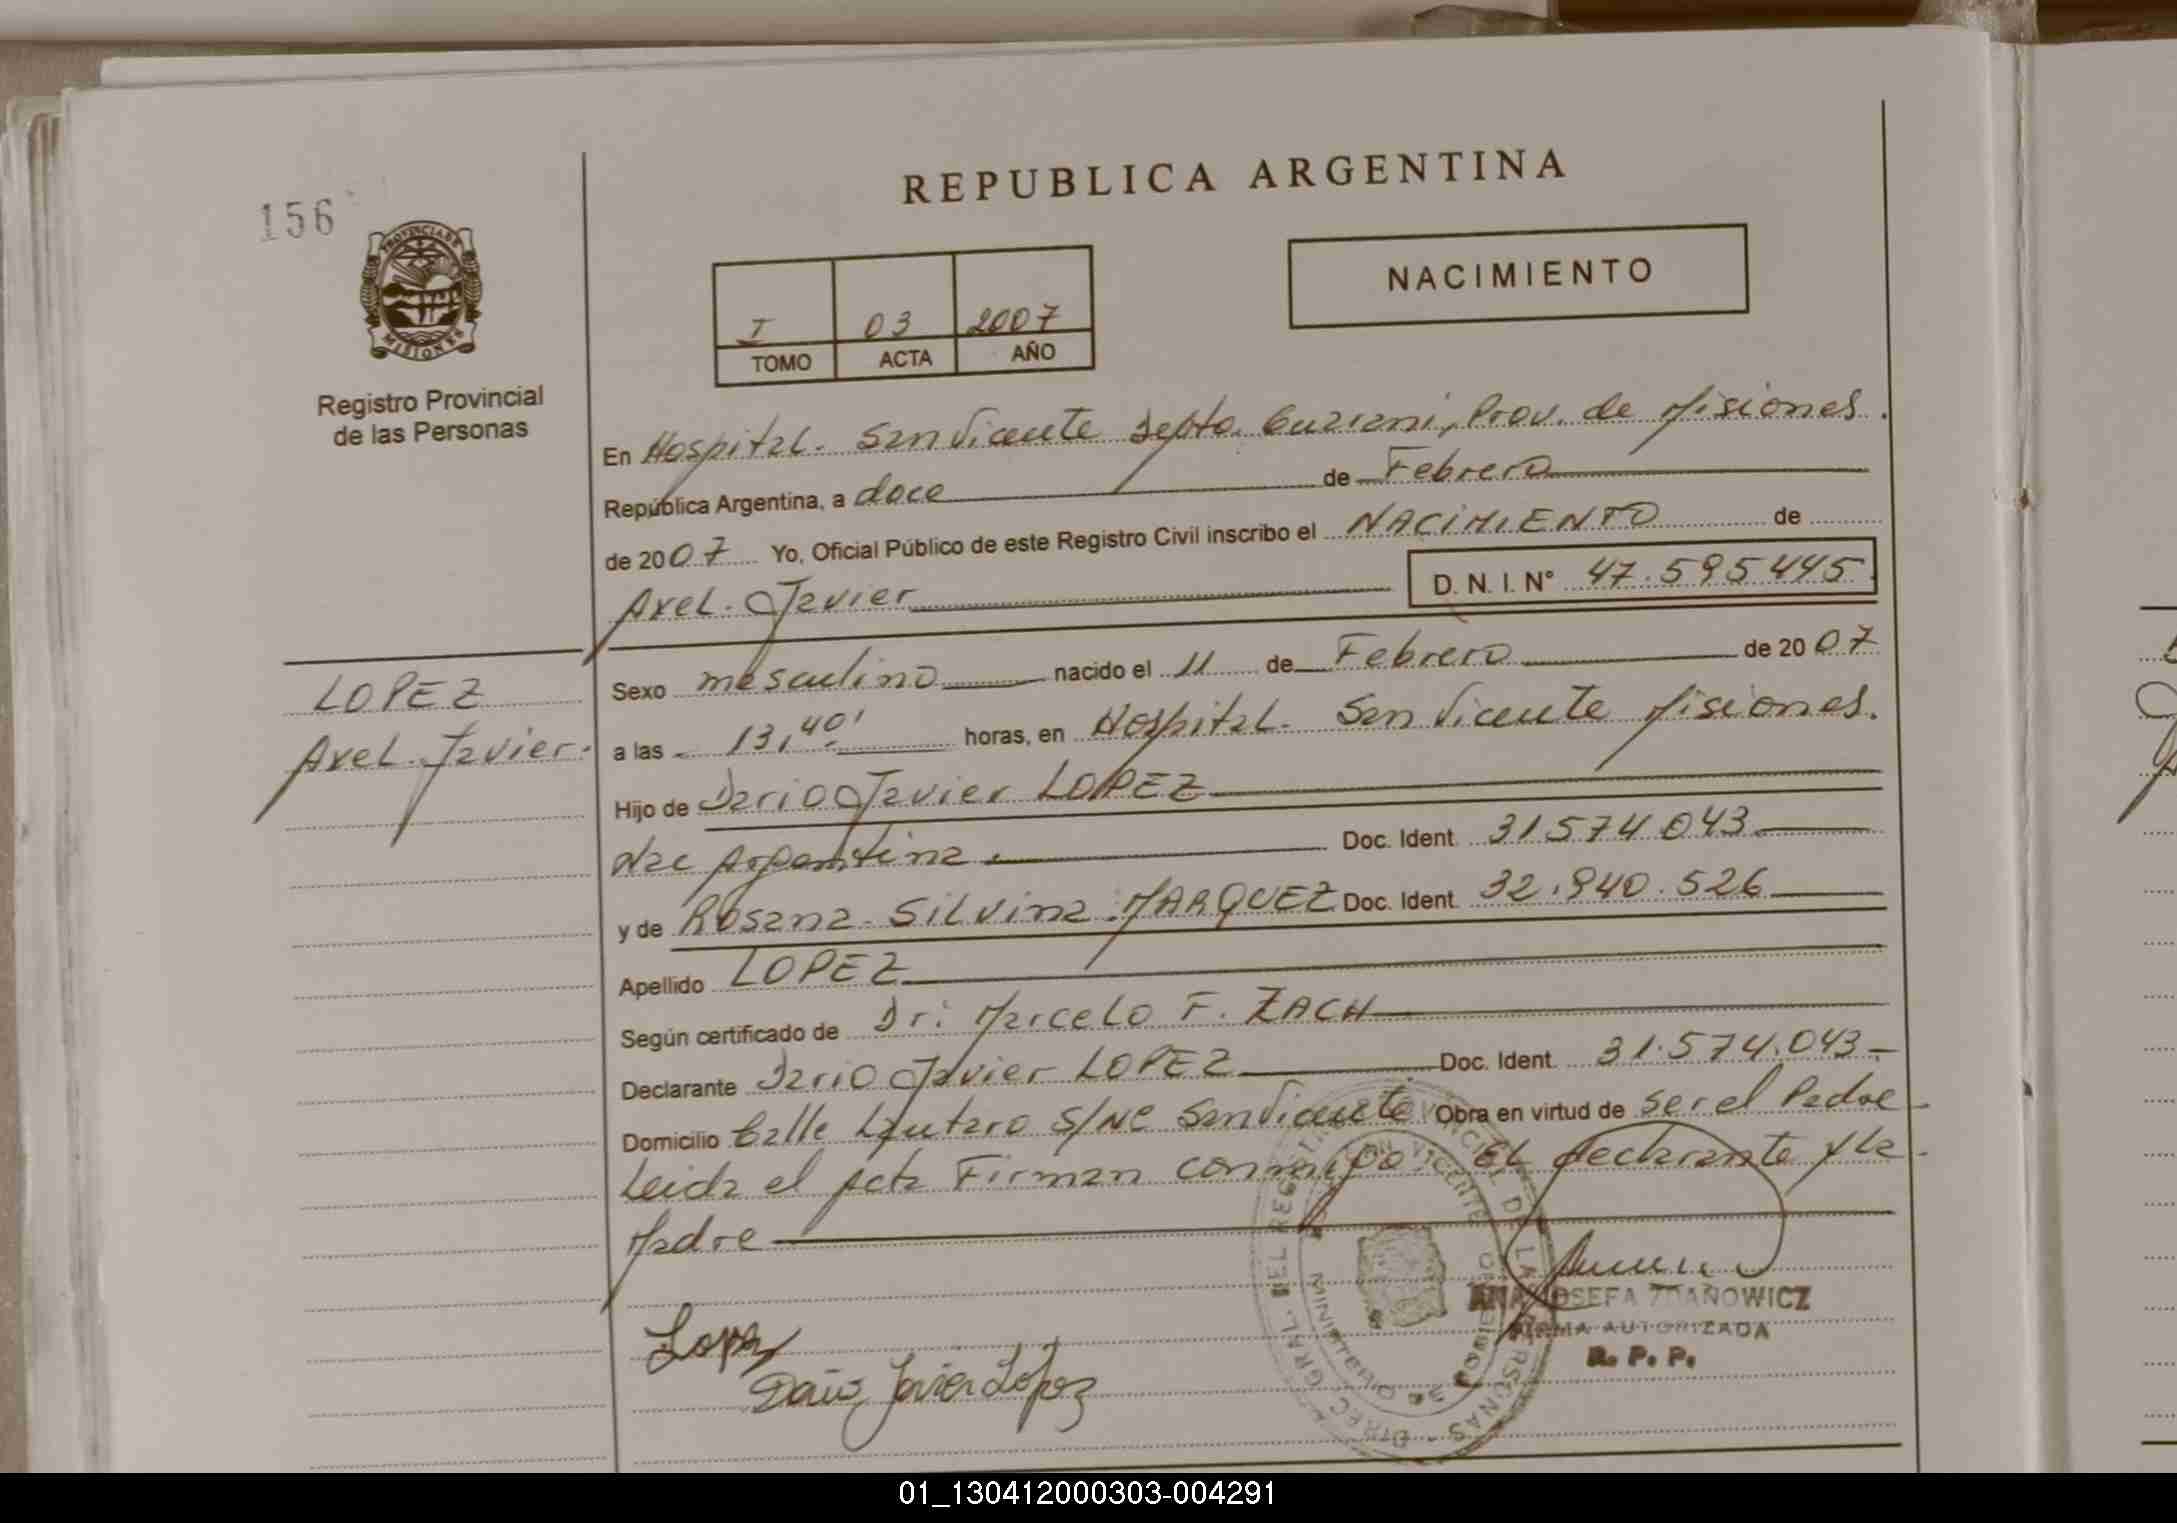 REPUBLICA ARGENTINA
156
PROVINCIA DE
MISIONES
Registro Provincial
de las Personas
I 03 2007
TOMO ACTA AÑO
NACIMIENTO
En Hospital. San Vicente Depto. Guarani, Prov. de Misiones.
República Argentina, a doce de Febrero
de 2007 Yo, Oficial Público de este Registro Civil inscribo el NACIMIENTO de
Axel. Javier D. N. I. N° 47.595445
LOPEZ
Axel. Javier.
Sexo masculino nacido el 11 de Febrero de 2007
a las 13,40' horas, en Hospital. San Vicente Misiones.
Hijo de Dario Javier LOPEZ
Nac Argentina. Doc. Ident. 31.574.043
y de Rosana Silvina MARQUEZ Doc. Ident. 32.940.526
Apellido LOPEZ
Según certificado de Dr: Marcelo F. ZACH
Declarante Dario Javier LOPEZ Doc. Ident. 31.574.043
Domicilio Calle Lautaro S/Nº San Vicente Obra en virtud de ser el Padre
Leida el Acta Firman conmigo. El declarante y la
Madre
Lopez
Dario Javier Lopez
ANA JOSEFA ZDANOWICZ
FIRMA AUTORIZADA
R. P. P.
01_130412000303-004291